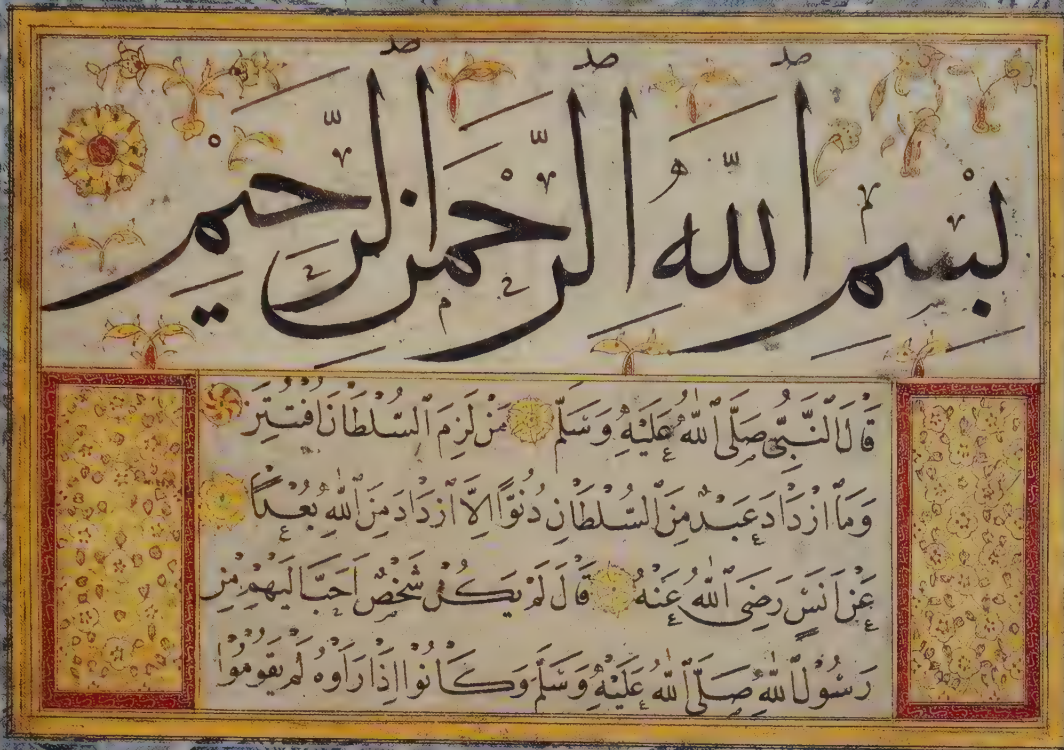 بِسْمِ ٱللَّهِ ٱلرَّحْمٰنِ ٱلرَّحِيمِ
قَالَ ٱلنَّبِىُّ صَلَّى ٱللّٰهُ عَلَيْهِ وَسَلَّمَ مَنْ لَزِمَ ٱلسُّلْطَانَ افْتُتِنَ
وَمَا ٱزْدَادَ عَبْدٌ مِنَ ٱلسُّلْطَانِ دُنُوًّا اِلَّا ٱزْدَادَ مِنَ ٱللّٰهِ بُعْدًا
عَنْ اَنَسٍ رَضِىَ ٱللّٰهُ عَنْهُ قَالَ لَمْ يَكُنْ شَخْصٌ اَحَبَّ اِلَيْهِمْ مِنْ
رَسُولِ ٱللّٰهِ صَلَّى ٱللّٰهُ عَلَيْهِ وَسَلَّمَ وَكَانُوا اِذَا رَاَوْهُ لَمْ يَقُومُوا